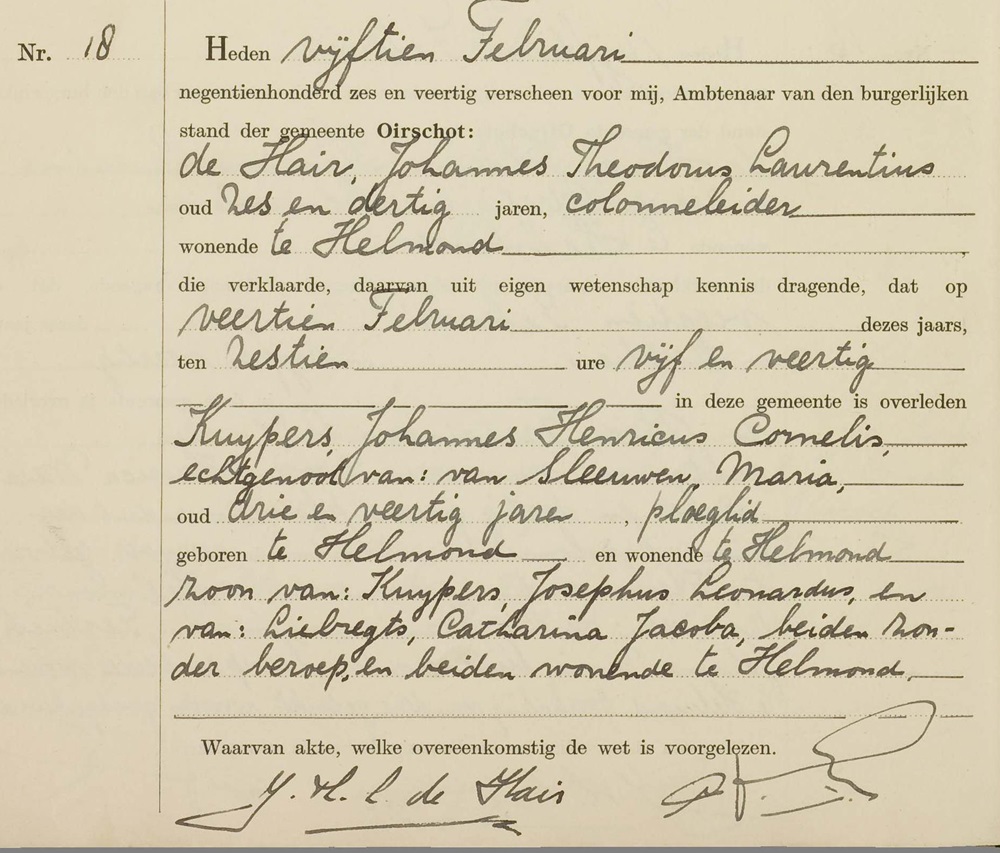 Nr. 18 Heden vijftien Februari
negentienhonderd zes en veertig verscheen voor mij, Ambtenaar van den burgerlijken
stand der gemeente Oirschot:
de Hair, Johannes Theodorus Laurentius
oud zes en dertig jaren, colonneleider
wonende te Helmond
die verklaarde, daarvan uit eigen wetenschap kennis dragende, dat op
veertien Februari dezes jaars,
ten zestien ure vijf en veertig
in deze gemeente is overleden
Kuypers, Johannes Henricus Cornelis,
echtgenoot van: van Sleeuwen, Maria,
oud drie en veertig jaren, ploeglid
geboren te Helmond en wonende te Helmond
zoon van: Kuypers, Josephus Leonardus, en
van: Liebregts, Catharina Jacoba, beiden zon-
der beroep, en beiden wonende te Helmond,
Waarvan akte, welke overeenkomstig de wet is voorgelezen.
de Hair